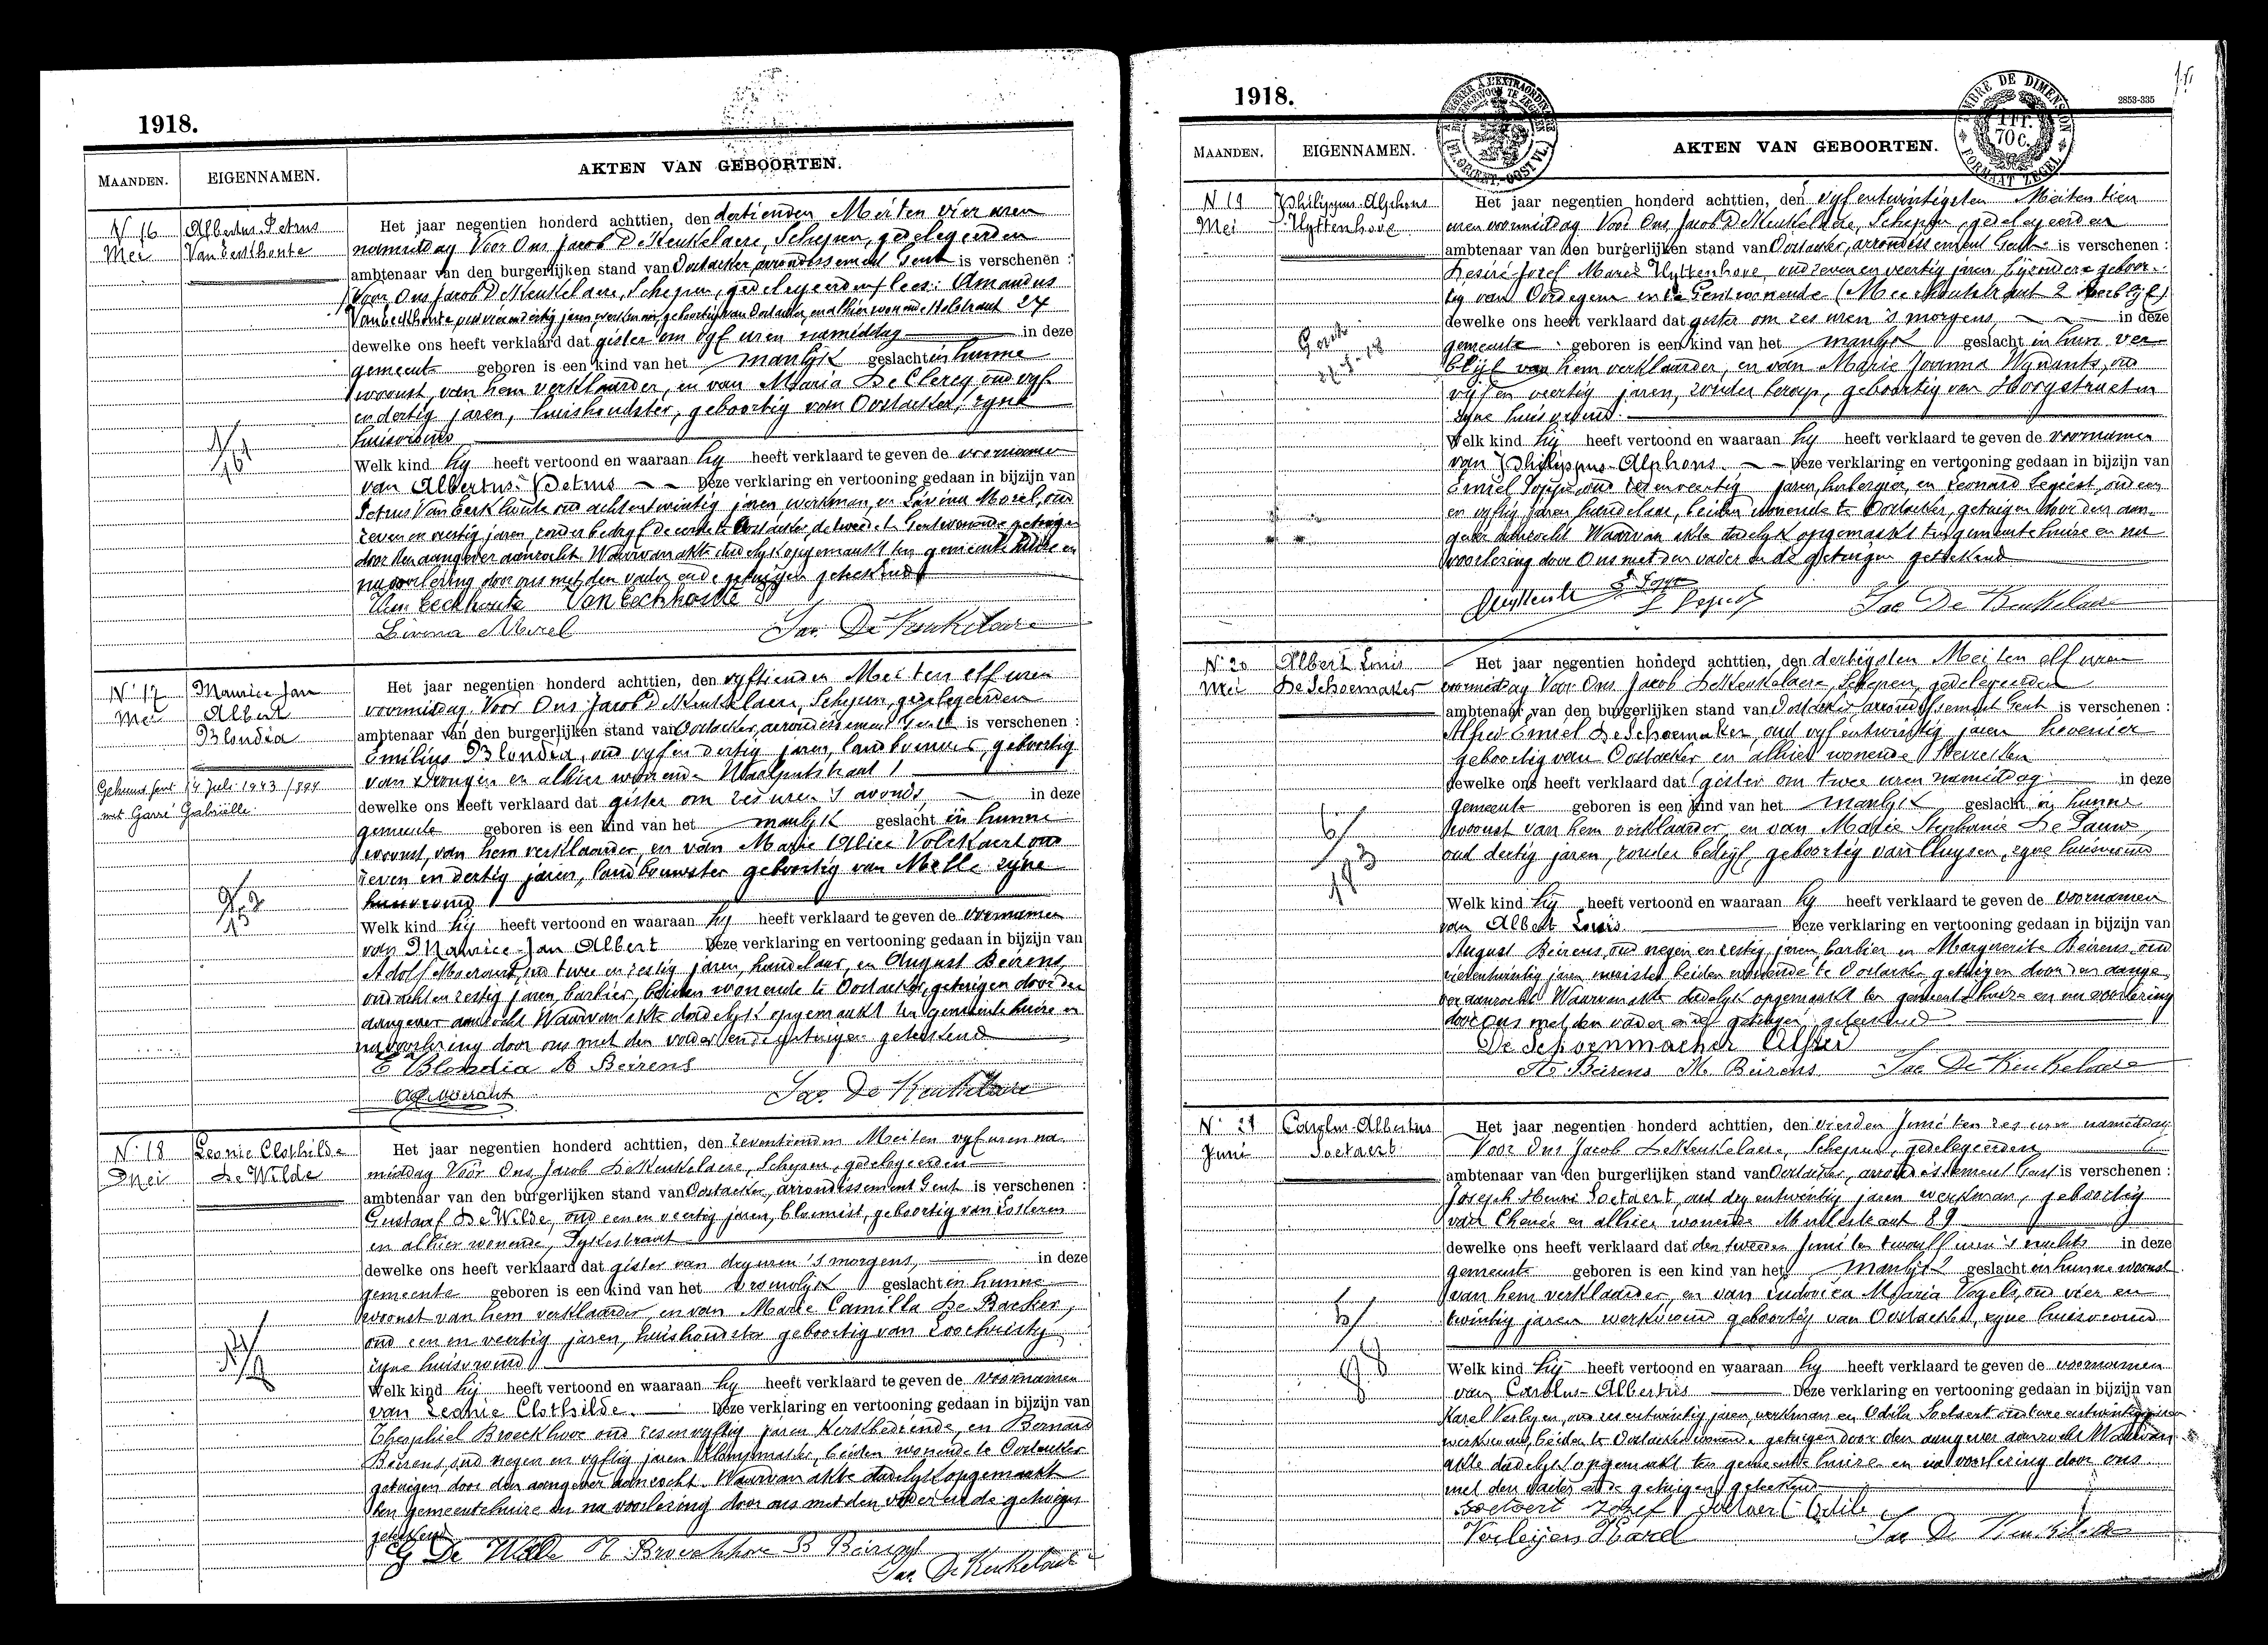 1918.
MAANDEN.
EIGENNAMEN.
AKTEN VAN GEBOORTEN.
N 16
Mei
Albertus Petrus
Van Eeckhoute
Het jaar negentien honderd achttien, den dertienden Mei ten vier uren
namiddag Voor Ons Jacob De Keukelaere, Schepen, gedelegeerden
ambtenaar van den burgerlijken stand van Oostacker, arrondissement Gent is verschenen :
Voor Ons Jacob De Keukelaere, Schepen, gedelegeerden lees: Amandus
Van Eeckhoute oud vier en dertig jaren, werkman, geboortig van Oostacker, en alhier wonende 24
dewelke ons heeft verklaard dat gister om vyf uren namiddag in deze
gemeente geboren is een kind van het manlyk geslacht in hunne
woonst, van hem verklaarder, en van Maria De Clercq oud vyf
en dertig jaren, huishoudster, geboortig van Oostacker, zyne
huisvrouw
Welk kind hy heeft vertoond en waaraan hy heeft verklaard te geven de voornamen
van Albertus-Petrus Deze verklaring en vertooning gedaan in bijzijn van
Petrus Van Eeckhoute oud acht en twintig jaren, werkman, en Livina Morel, oud
zeven en zestig jaren, zonder bedryf de eerste te Oostacker, de tweede te Gent wonende getuigen
door den aangever aanzocht. Waarvan akte dadelyk opgemaakt ten gemeentehuize en
na voorlezing door ons met den vader en de getuigen geteekend
Van Eeckhoute Van Eeckhoutte
Livina Morel Jac. De Keukelaere
N. 17
Mei
Maurice Jan
Albert
Blondia
Gehuwd Gent 14 Juli 1943 / 894
met Garré Gabriëlle.
Het jaar negentien honderd achttien, den vyftienden Mei ten elf uren
voormiddag Voor Ons Jacob De Keukelaere, Schepen, gedelegeerden
ambtenaar van den burgerlijken stand van Oostacker, arrondissement Gent is verschenen :
Emilius Blondia, oud vyf en dertig jaren, landbouwer, geboortig
van Drongen en alhier wonende Waalputstraat 1
dewelke ons heeft verklaard dat gister om zes uren 's avonds in deze
gemeente geboren is een kind van het manlyk geslacht in hunne
woonst, van hem verklaarder, en van Marie Alice Volckaert oud
zeven en dertig jaren, landbouwster geboortig van Melle zyne
huisvrouw
Welk kind hy heeft vertoond en waaraan hy heeft verklaard te geven de voornamen
van Maurice-Jan Albert Deze verklaring en vertooning gedaan in bijzijn van
Adolf oud twee en zestig jaren, handelaar, en August Beirens,
oud acht en zestig jaren, barbier, beiden wonende te Oostacker, getuigen door den
aangever aanzocht Waarvan akte dadelyk opgemaakt ten gemeentehuize en
na voorlezing door ons met den vader en de getuigen geteekend
E Blondia A Beirens
Jac. De Keukelaere
N. 18
Mei
Leonie Clothilde
De Wilde
Het jaar negentien honderd achttien, den zeventienden Mei ten vyf uren na-
middag Voor Ons, Jacob De Keukelaere, Schepen, gedelegeerden
ambtenaar van den burgerlijken stand van Oostacker, arrondissement Gent is verschenen :
Gustaaf De Wilde, oud een en veertig jaren, bloemist, geboortig van Lokeren
en alhier wonende, Dykestraat
dewelke ons heeft verklaard dat gister van dry uren 's morgens, in deze
gemeente geboren is een kind van het vrouwlyk geslacht in hunne
woonst van hem verklaarder, en van Marie Camilla De Backer,
oud een en veertig jaren, huishoudster geboortig van Loochristy
zyne huisvrouw
Welk kind hij heeft vertoond en waaraan hy heeft verklaard te geven de voornamen
van Leonie Clothilde. Deze verklaring en vertooning gedaan in bijzijn van
Theophiel Broeckhove oud zes en vyftig jaren Kerkbediende, en Bernard
Beirens, oud negen en vyftig jaren beiden wonende te Oostacker
getuigen door den aangever aanzocht. Waarvan akte dadelyk opgemaakt
ten gemeentehuize en na voorlezing door ons met den vader en de getuigen
geteekend
G De Wilde Th Broeckhove B Beirens
Jac. De Keukelaere
1918.
2853-335
MAANDEN.
EIGENNAMEN.
AKTEN VAN GEBOORTEN.
N 19
Mei
Philippus-Alphons
Huyttenhove
Het jaar negentien honderd achttien, den vyf en twintigsten Mei ten tien
uren voormiddag Voor Ons, Jacob De Keukelaere, Schepen, gedelegeerden
ambtenaar van den burgerlijken stand van Oostacker, arrondissement Gent is verschenen :
Desiré Jozef Marie Huyttenhove, oud zeven en veertig jaren, bijzondere geboor-
tig van Oordegem en te Gent wonende (Meerhoutstraat 2 verblijf)
dewelke ons heeft verklaard dat gister om zes uren 's morgens in deze
gemeente geboren is een kind van het manlyk geslacht in hun ver-
blijf van hem verklaarder, en van Marie Joanna Wynants, oud
vijf en veertig jaren, zonder beroep, geboortig van
zyne huisvrouw.
Welk kind hij heeft vertoond en waaraan hy heeft verklaard te geven de voornamen
van Philippus-Alphons. Deze verklaring en vertooning gedaan in bijzijn van
Emiel Poppe, oud zes en veertig jaren, herbergier, en Leonard Segaert, oud een
en vyftig jaren handelaar, beiden wonende te Oostacker, getuigen door den aan-
gever aanzocht Waarvan akte dadelyk opgemaakt ten gemeentehuize en na
voorlezing door Ons met den vader en de getuigen geteekend
Jac De Keukelaere
N. 20
Mei
Albert Louis
De Schoemaker
Het jaar negentien honderd achttien, den dertigsten Mei ten elf uren
voormiddag Voor Ons Jacob De Keukelaere, Schepen, gedelegeerden
ambtenaar van den burgerlijken stand van Oostacker, arrondissement Gent is verschenen :
Alfred Emiel De Schoemaker oud vyf en twintig jaren hovenier
geboortig van Oostacker en alhier wonende
dewelke ons heeft verklaard dat gister om twee uren namiddag in deze
gemeente geboren is een kind van het manlyk geslacht in hunne
woonst van hem verklaarder, en van Marie Stephanie De Pauw,
oud dertig jaren, zonder bedryf, geboortig van Cluysen, zyne huisvrouw
Welk kind hij heeft vertoond en waaraan hy heeft verklaard te geven de voornamen
van Albert Louis Deze verklaring en vertooning gedaan in bijzijn van
August Beirens, oud negen en zestig jaren barbier en Marguerite Beirens, oud
vier en twintig jaren modiste beiden wonende te Oostacker getuigen door den aange-
ver aanzocht Waarvan akte dadelyk opgemaakt ten gemeentehuize en na voorlezing
door ons met den vader en de getuigen geteekend
De Schoenmacker Alfred
A. Beirens M. Beirens Jac De Keukelaere
N. 21
Juni
Carolus-Albertus
Soetaert
Het jaar negentien honderd achttien, den vierden Juni ten zes uren namiddag
Voor Ons Jacob De Keukelaere, Schepen, gedelegeerden
ambtenaar van den burgerlijken stand van Oostacker, arrondissement Gent is verschenen :
Joseph Henri Soetaert, oud dry en twintig jaren werkman, geboortig
van Chenée en alhier wonende 89
dewelke ons heeft verklaard dat den tweeden Juni ten twaalf uren 's nachts in deze
gemeente geboren is een kind van het manlyk geslacht in hunne woonst
van hem verklaarder, en van Ludovica Maria Vogels, oud vier en
twintig jaren werkvrouw geboortig van Oostacker, zyne huisvrouw
Welk kind hij heeft vertoond en waaraan hy heeft verklaard te geven de voornamen
van Carolus-Albertus Deze verklaring en vertooning gedaan in bijzijn van
Karel Verleyen, oud zes en twintig jaren, werkman en Odile Soetaert oud twee en twintig jaren
werkvrouw, beiden te Oostacker wonende getuigen door den aangever aanzocht Waarvan
akte dadelyk opgemaakt ten gemeentehuize en na voorlezing door ons
met den vader en de getuigen geteekend
Soetaert Jozef Soetaert Odile
Verleyen Karel Jac De Keukelaere